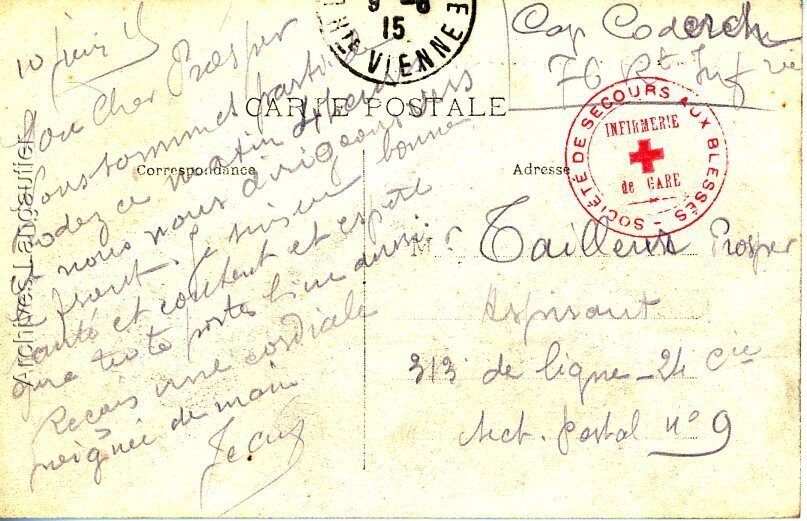 9-6
15
HTE VIENNE
Cap Coderch
76 Rt Infrie
CARTE POSTALE
Correspondance
Adresse
SOCIÉTÉ DE SECOURS AUX BLESSÉS
INFIRMERIE
de GARE
10 Juin 15
Mon Cher Prosper
Nous sommes partis de
Rodez ce matin 4 heures
et nous nous dirigeons vers
le front. Je suis en bonne
santé et content et espère
que tu te portes bien aussi.
Reçois une cordiale
poignée de main
M r Tailleur Prosper
Aspirant
313 de ligne - 24 Cie
Sect. postal n° 9
Archives Langaulier